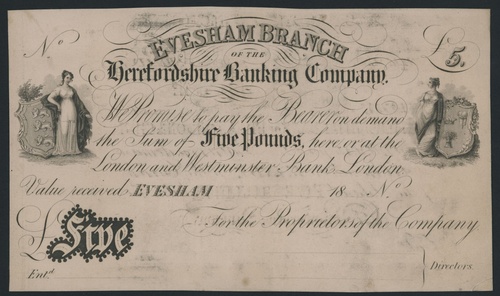 No
EVESHAM BRANCH
£5.
OF THE
Herefordshire Banking Company.
We Promise to pay the Bearer on demand
the Sum of Five Pounds, here, or at the
London and Westminster Bank, London
Value received EVESHAM 18 No.
For the Proprietors of the Company
£ Five
Entd.
Directors.